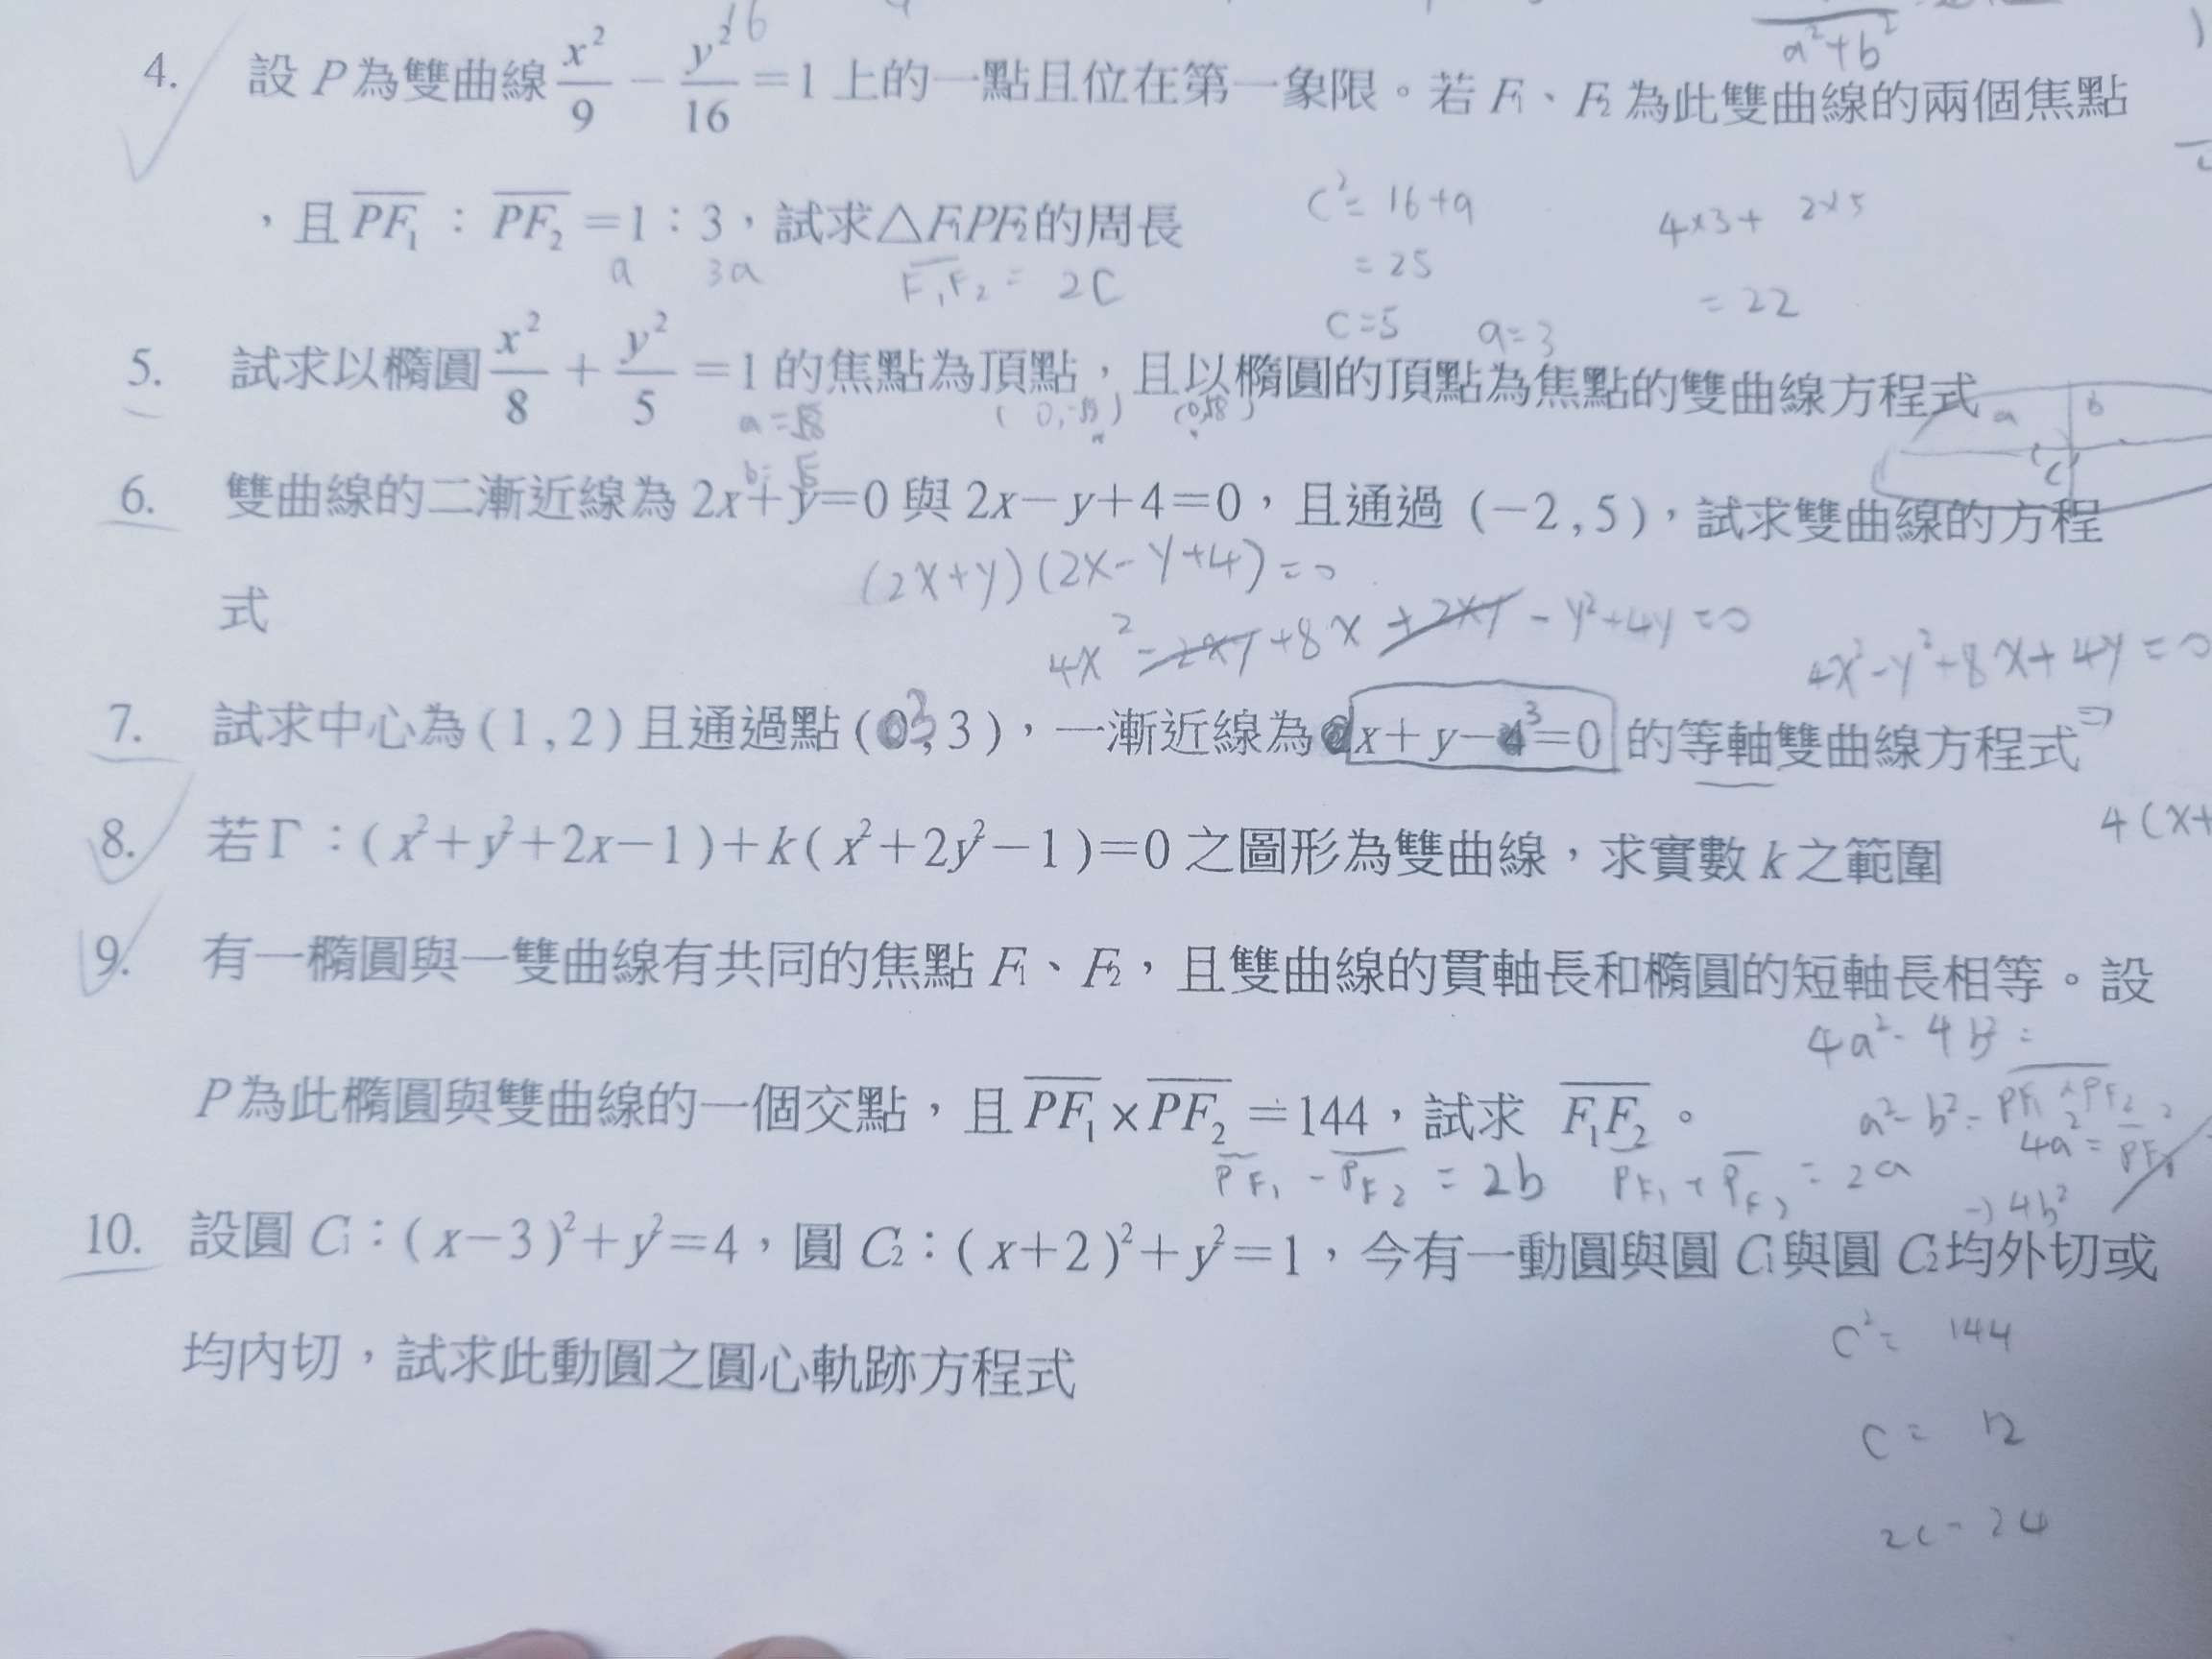 a²+b²
4. 設 P 為雙曲線 x²/9 − y²/16 = 1 上的一點且位在第一象限。若 F₁、F₂ 為此雙曲線的兩個焦點
16
，且 PF₁ : PF₂ = 1 : 3，試求△F₁PF₂的周長
a 3a
F₁F₂ = 2C
C² = 16+9
= 25
C=5 a=3
4×3+ 2×5
= 22
5. 試求以橢圓 x²/8 + y²/5 = 1 的焦點為頂點，且以橢圓的頂點為焦點的雙曲線方程式
a b
c
6. 雙曲線的二漸近線為 2x+y=0 與 2x−y+4=0，且通過 (−2,5)，試求雙曲線的方程
式
(2x+y)(2x−y+4)=0
4x²−2xy+8x+2xy−y²+4y=0
4x²−y²+8x+4y=0
7. 試求中心為(1,2)且通過點( ,3)，一漸近線為 x+y−3=0 的等軸雙曲線方程式
4(x+
8. 若Γ：(x²+y²+2x−1)+k(x²+2y²−1)=0 之圖形為雙曲線，求實數 k 之範圍
9. 有一橢圓與一雙曲線有共同的焦點 F₁、F₂，且雙曲線的貫軸長和橢圓的短軸長相等。設
4a²−4b²=
P 為此橢圓與雙曲線的一個交點，且 PF₁×PF₂=144，試求 F₁F₂。
a²−b²= PF₁×PF₂
PF₁−PF₂ = 2b PF₁+PF₂ = 2a
4b²
10. 設圓 C₁：(x−3)²+y²=4，圓 C₂：(x+2)²+y²=1，今有一動圓與圓 C₁與圓 C₂均外切或
均內切，試求此動圓之圓心軌跡方程式
C²= 144
C= 12
2C=24